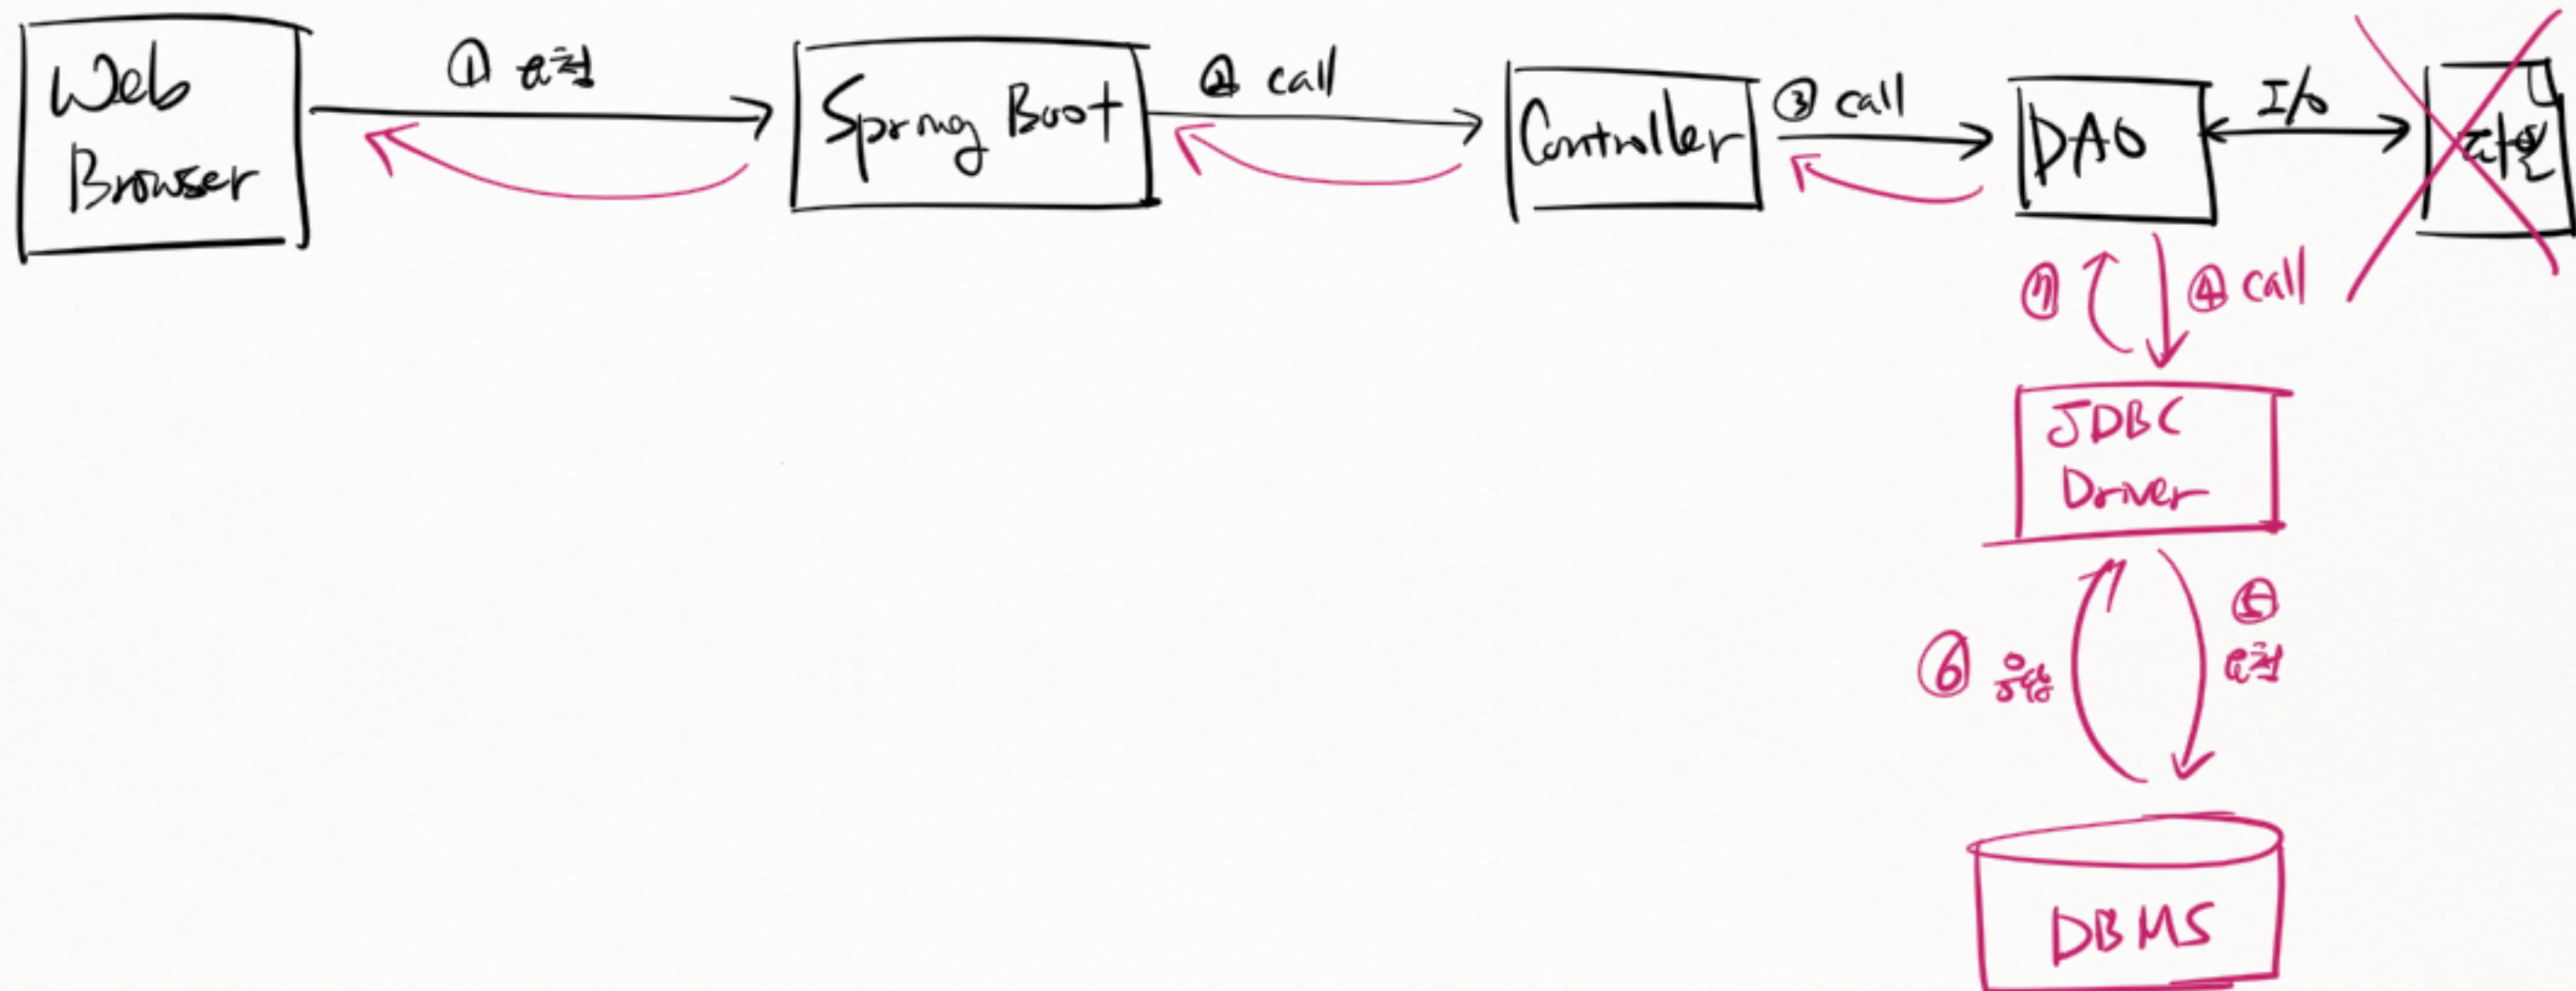 Web
Browser
① 요청
Spring Boot
② call
Controller
③ call
DAO
I/O
파일
⑦
④ call
JDBC
Driver
⑤
요청
⑥ 응답
DBMS